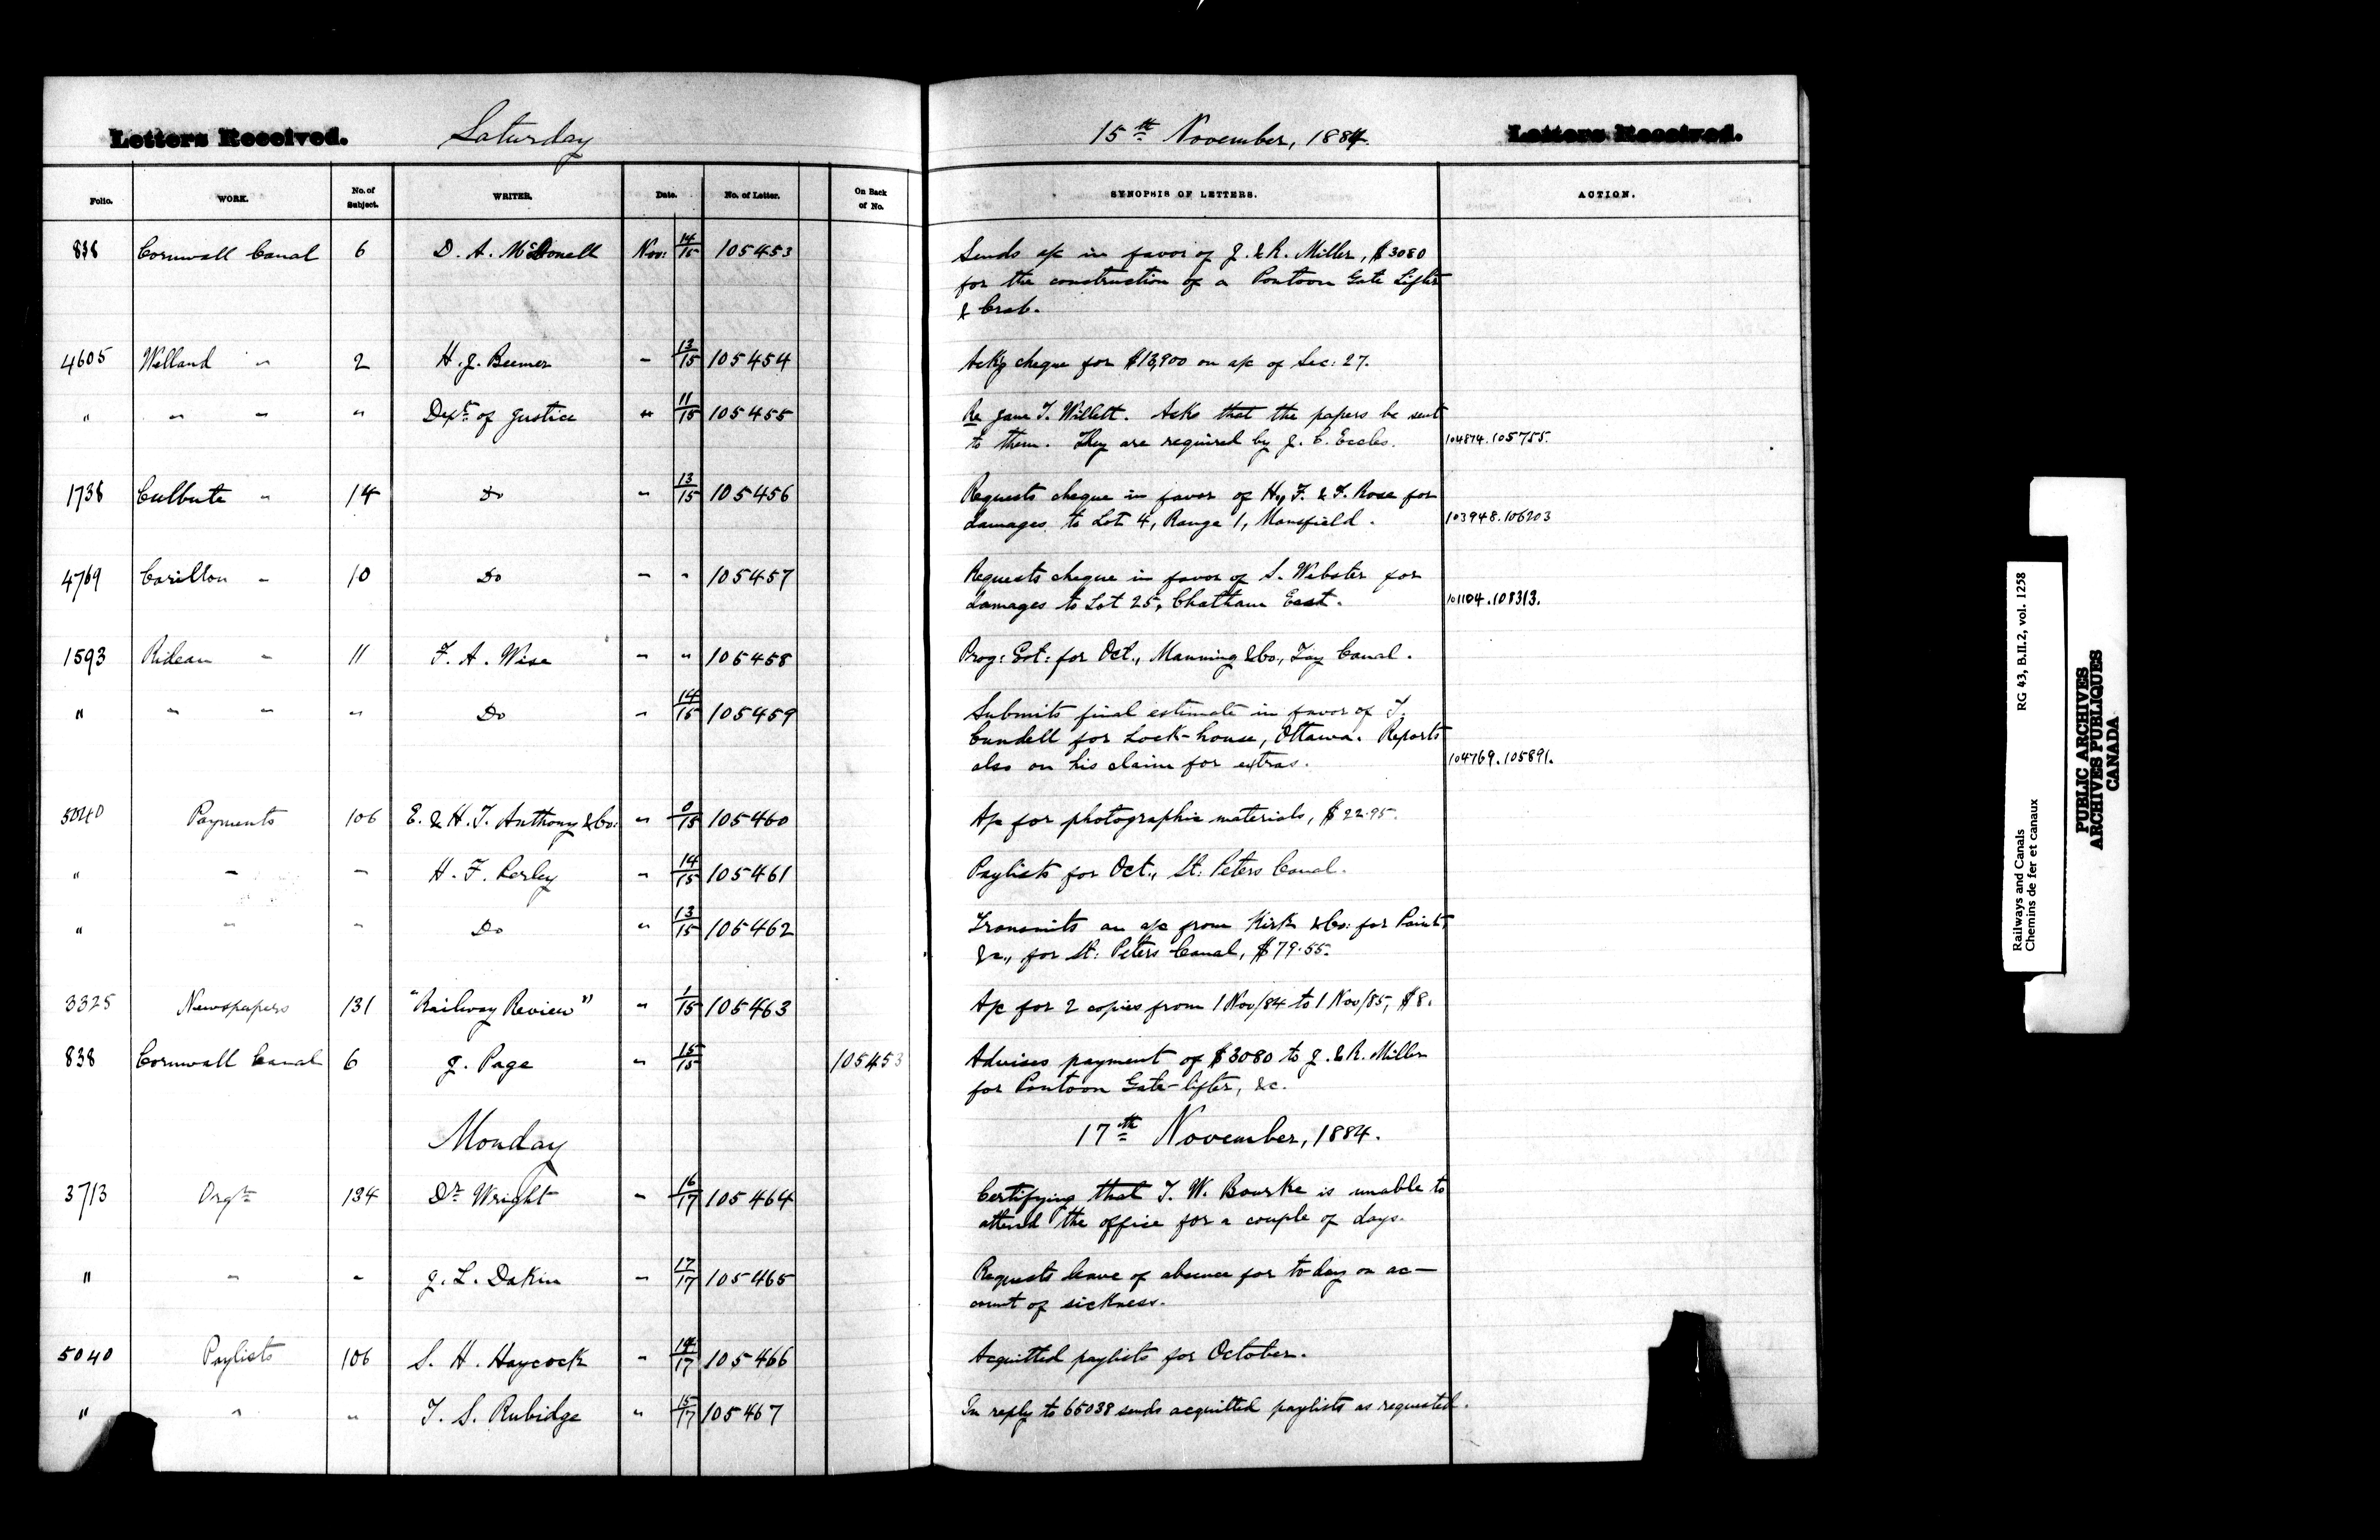 Letters Received. Saturday 15th November, 1884. Letters Received.
Folio. WORK. No. of Subject. WRITER. Date. No. of Letter. On Back of No. SYNOPSIS OF LETTERS. ACTION.
838 Cornwall Canal 6 D. A. McDonell Nov: 14/15 105453 Sends a/c in favor of J. & R. Miller, $3080
for the construction of a Pontoon Gate Lifter
& Crab.
4605 Welland " 2 H. J. Beemer " 13/15 105454 Ackg cheque for $13,900 on a/c of Sec: 27.
" " " " Dept. of Justice " 11/15 105455 Re Jane T. Willett. Asks that the papers be sent
to them. They are required by J. C. Eccles. 104874.105755.
1738 Culbute " 14 Do " 13/15 105456 Requests cheque in favor of Hy, F. & T. Rose for
damages to Lot 4, Range 1, Mansfield. 103948.106203
4769 Carillon " 10 Do " " 105457 Requests cheque in favor of S. Webster for
damages to Lot 25, Chatham East. 101104.108313.
1593 Rideau " 11 F. A. Wise " " 105458 Prog: Est: for Oct., Manning & Co., Tay Canal.
" " " " Do " 14/15 105459 Submits final estimate in favor of T.
Cundell for Lock-house, Ottawa. Reports
also on his claim for extras. 104769.105891.
5040 Payments 106 E. & H. T. Anthony & Co. " 0/15 105460 A/c for photographic materials, $22.95.
" " " H. F. Perley " 14/15 105461 Paylists for Oct., St. Peters Canal.
" " " Do " 13/15 105462 Transmits an a/c from Kirk & Co: for Paint,
&c., for St: Peters Canal, $79.55.
3325 Newspapers 131 "Railway Review" " 1/15 105463 A/c for 2 copies from 1 Nov/84 to 1 Nov/85, $8.
838 Cornwall Canal 6 J. Page " 15/15 105453 Advises payment of $3080 to J. & R. Miller
for Pontoon Gate-lifter, &c.
Monday 17th November, 1884.
3713 Orgn 134 Dr. Wright " 16/17 105464 Certifying that T. W. Bourke is unable to
attend the office for a couple of days.
" " " J. L. Dakin " 17/17 105465 Requests leave of absence for to day on ac-
count of sickness.
5040 Paylists 106 S. H. Haycock " 14/17 105466 Acquitted paylists for October.
" " " T. S. Rubidge " 15/17 105467 In reply to 65038 sends acquitted paylists as requested.
Railways and Canals RG 43, B.II.2, vol. 1258
Chemins de fer et canaux
PUBLIC ARCHIVES
ARCHIVES PUBLIQUES
CANADA